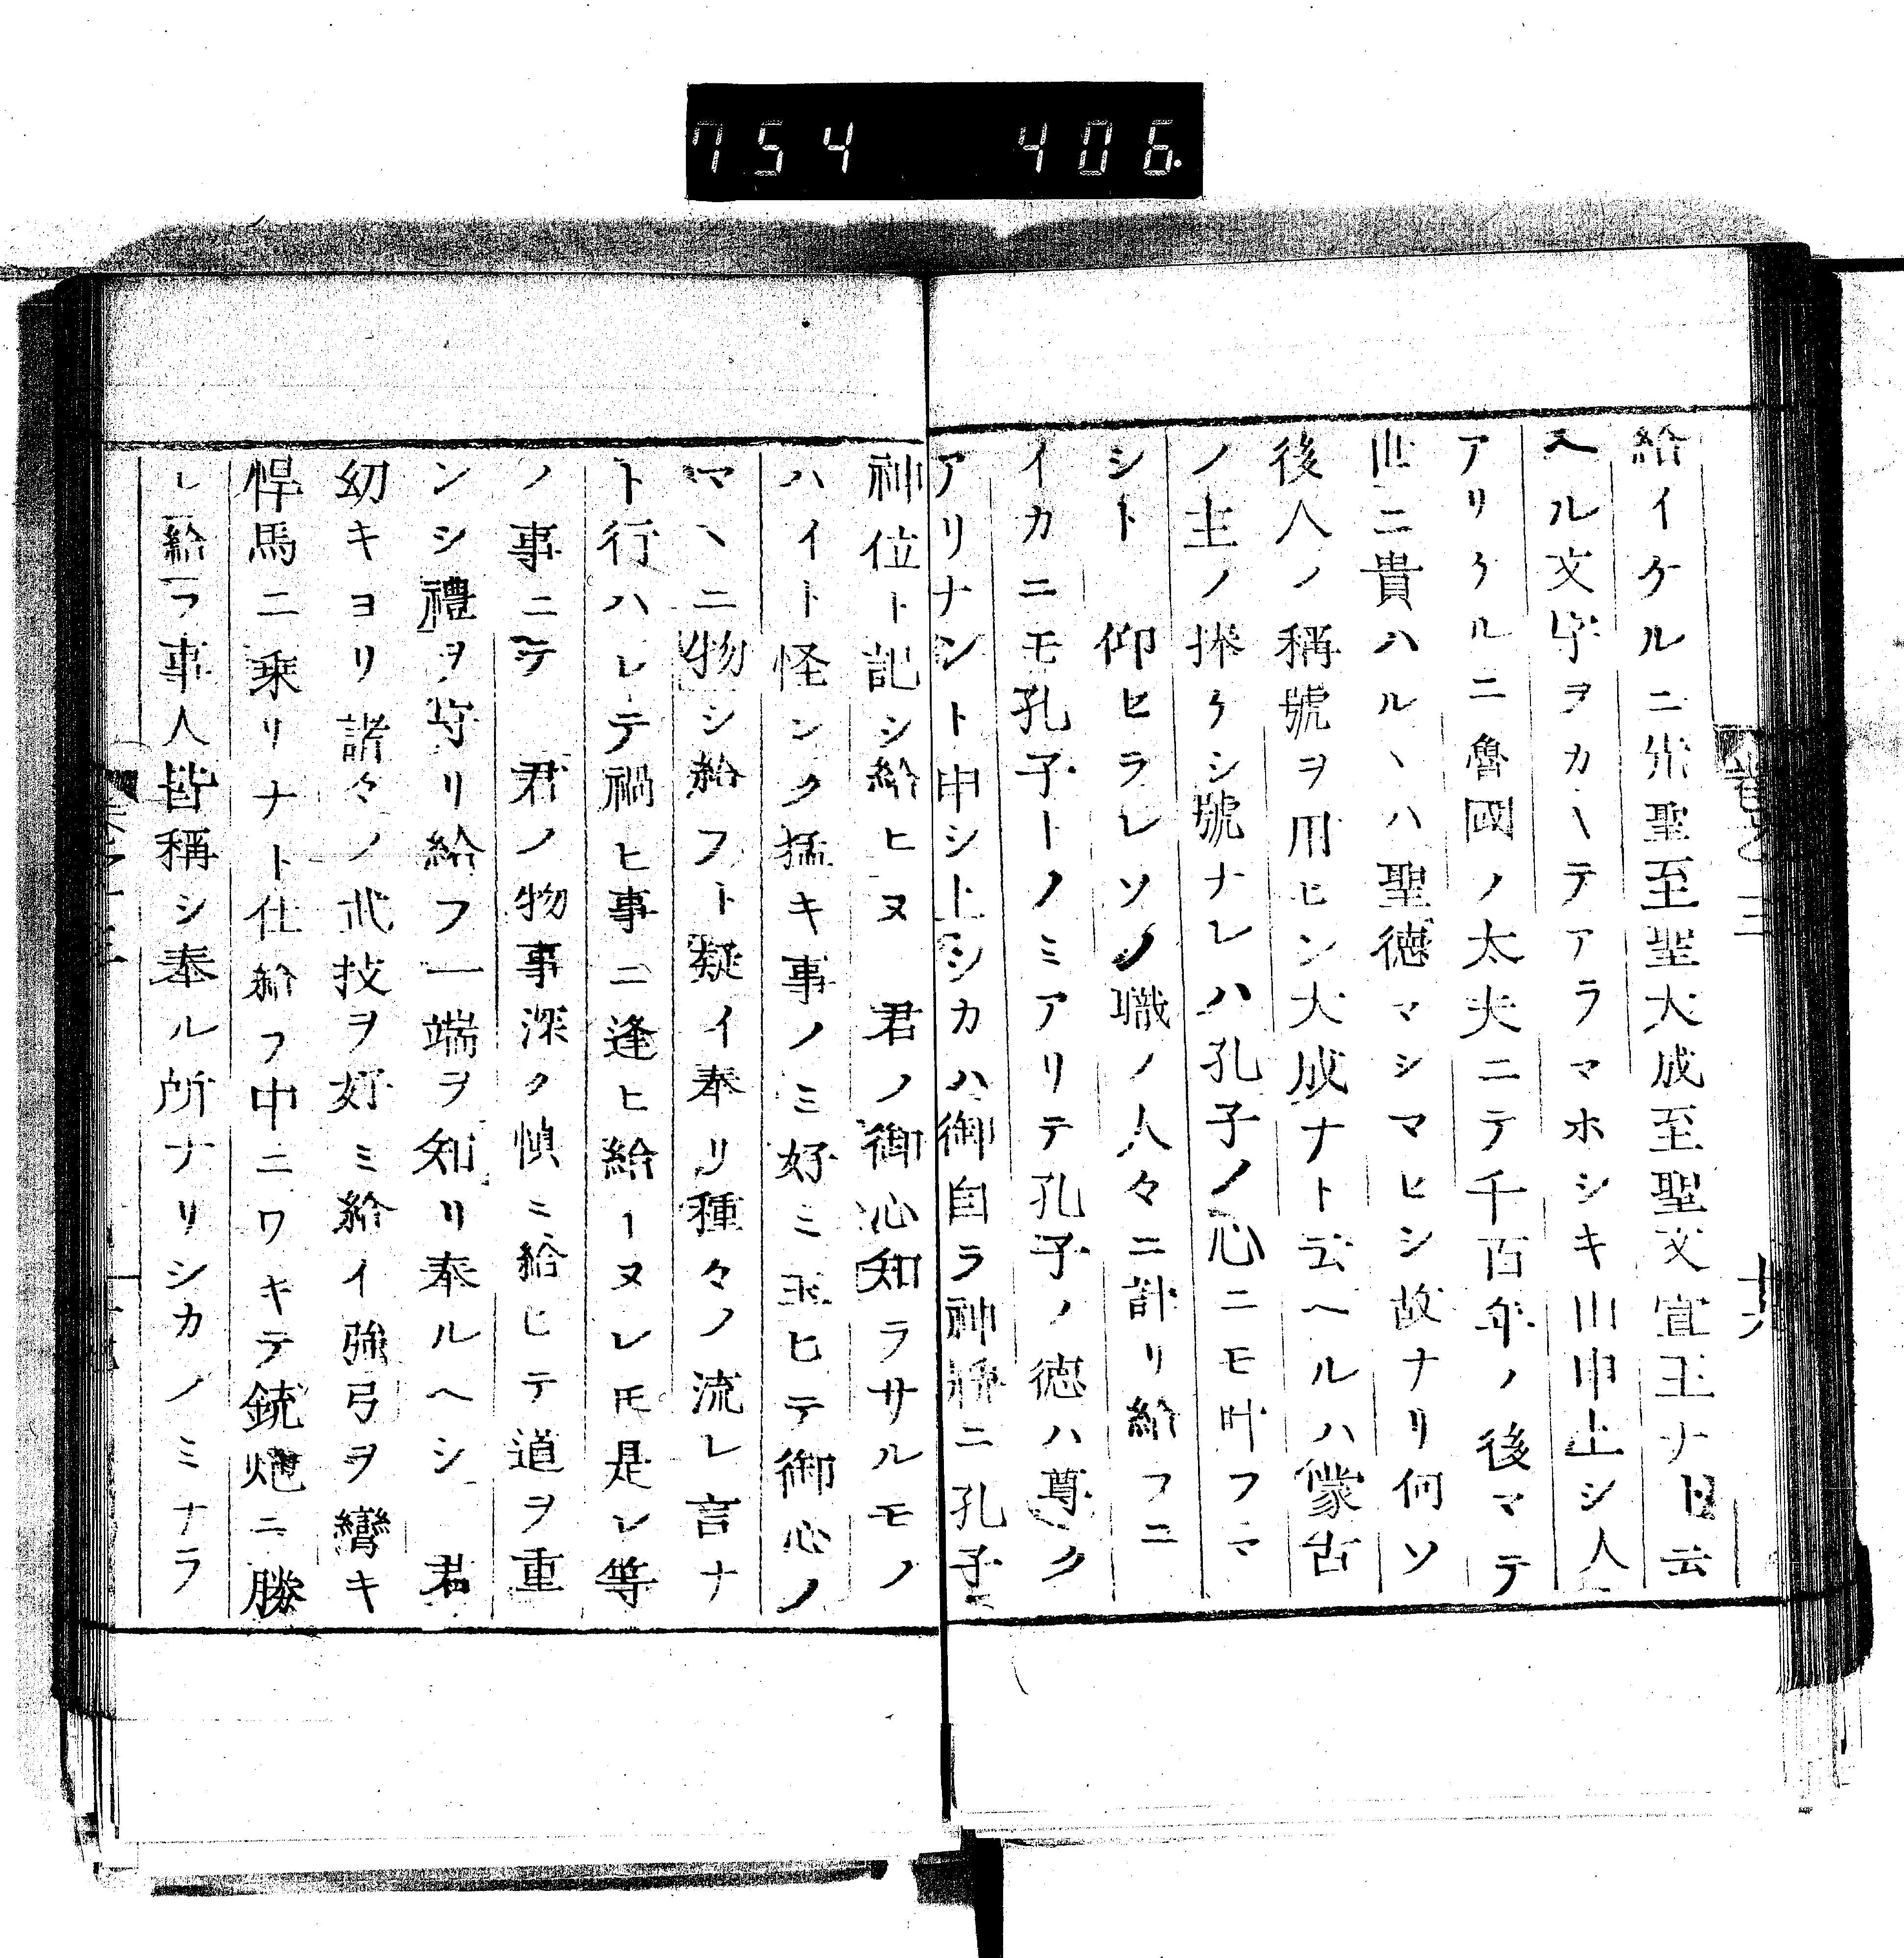 754 406.
給イケルニ先聖至聖大成至聖文宣王ナト云
ヘル文字ヲカヽテアラマホシキ由申上シ人
アリケルニ魯國ノ太夫ニテ千百年ノ後マテ
世ニ貴ハルヽハ聖德マシマヒシ故ナリ何ソ
後人ノ稱號ヲ用ヒン大成ナト云ヘルハ蒙古
ノ主ノ捧ケシ號ナレハ孔子ノ心ニモ叶フマ
シト 仰ヒラレソノ職ノ人々ニ計リ給フニ
イカニモ孔子トノミアリテ孔子ノ德ハ尊ク
アリナント申シ上シカハ御自ラ神牌ニ孔子
神位ト記シ給ヒヌ 君ノ御心知ラサルモノ
ハイト怪シク猛キ事ノミ好ミ玉ヒテ御心ノ
マヽニ物シ給フト疑イ奉リ種々ノ流レ言ナ
ト行ハレテ禍ヒ事ニ逢ヒ給ーヌレ𪜈是レ等
ノ事ニテ 君ノ物事深ク愼ミ給ヒテ道ヲ重
ンシ禮ヲ守リ給フ一端ヲ知リ奉ルヘシ 君
幼キヨリ諸々ノ武技ヲ好ミ給イ強弓ヲ彎キ
悍馬ニ乗リナト仕給フ中ニワキテ銃炮ニ勝
レ給フ事人皆稱シ奉ル所ナリシカノミナラ